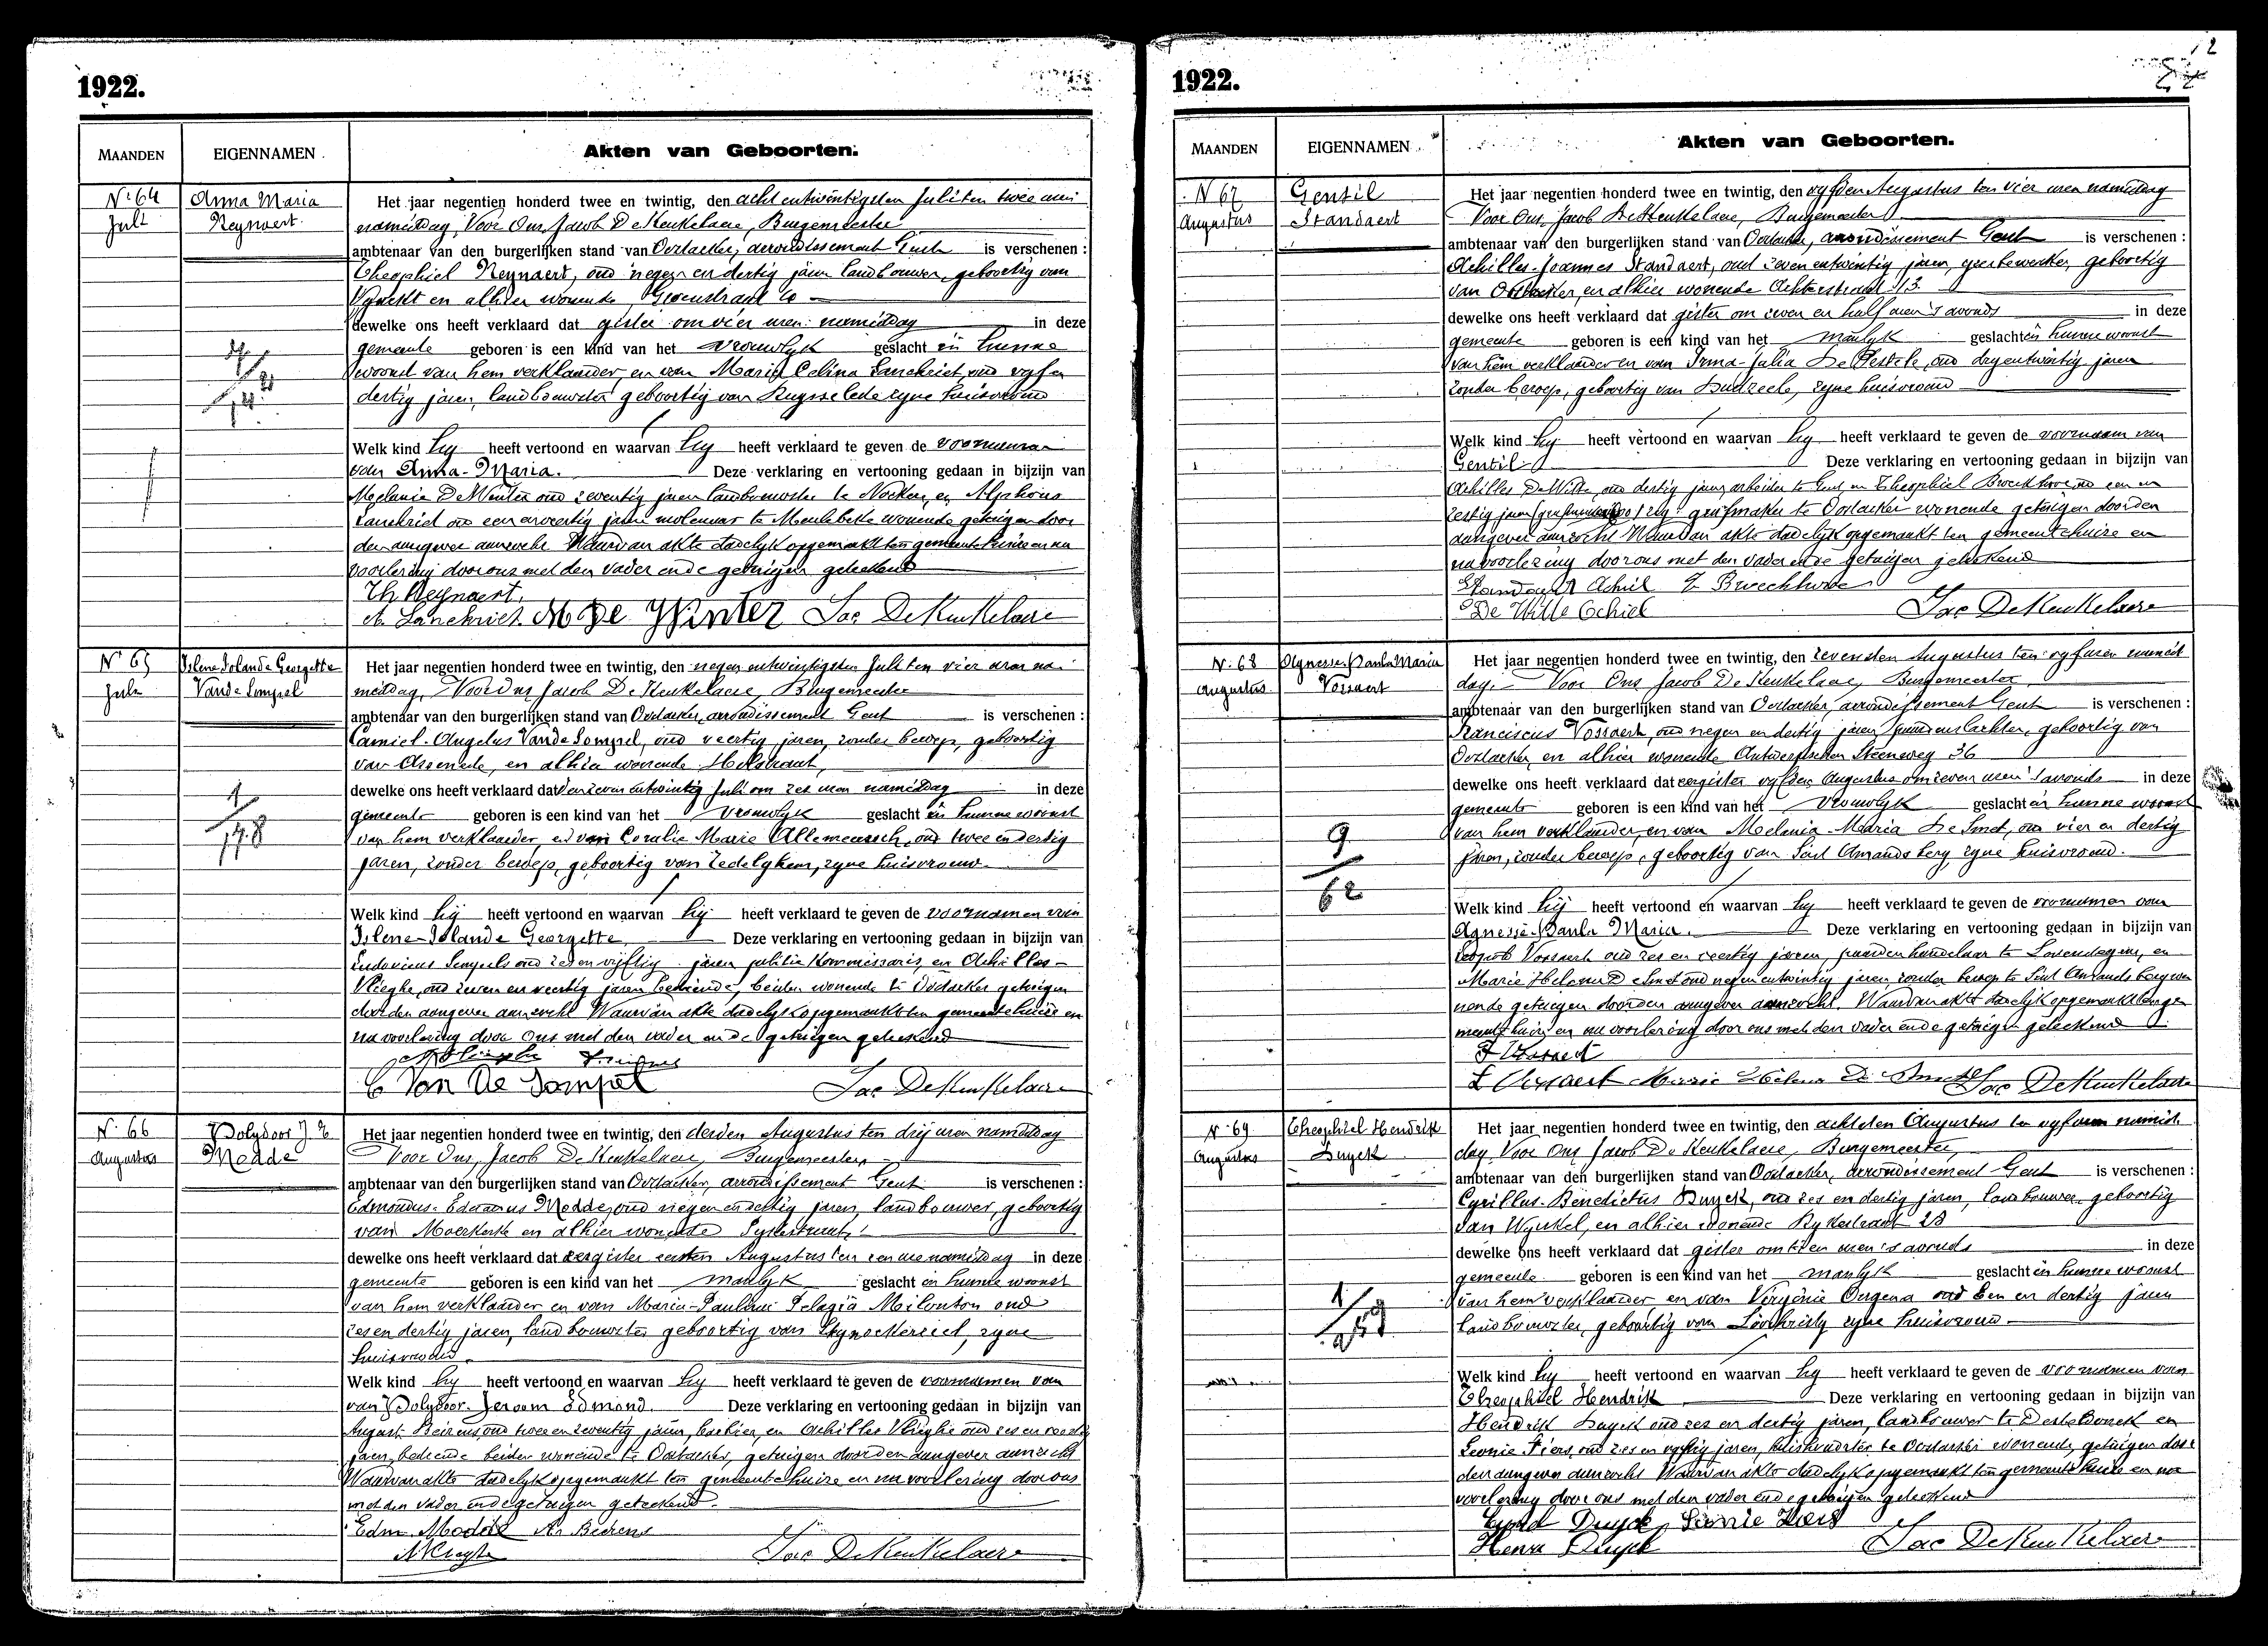 1922.
MAANDEN EIGENNAMEN. Akten van Geboorten.
N° 64 Anna Maria
Juli Reynaert.
Het jaar negentien honderd twee en twintig, den acht entwintigsten Juli ten twee uren
namiddag, Voor Ons, Jacob De Keukelaere, Burgemeester
ambtenaar van den burgerlijken stand van Oostacker, arrondissement Gent is verschenen :
Theophiel Reynaert, oud negen en dertig jaren landbouwer, geboortig van
en alhier wonende,
dewelke ons heeft verklaard dat gister om vier uren namiddag in deze
gemeente geboren is een kind van het vrouwlyk geslacht in hunne
woonst van hem verklaarder, en van Maria Celina Lanckriet, oud vyf en
dertig jaren, landbouwster geboortig van Ruysselede zyne huisvrouw
Welk kind hy heeft vertoond en waarvan hy heeft verklaard te geven de voornamen
van Anna-Maria. Deze verklaring en vertooning gedaan in bijzijn van
Melanie De Winter oud zeventig jaren landbouwster te en Alphons
Lanckriet oud een en veertig jaren molenaar te Meulebeke wonende getuigen door
den aangever aanzocht Waarvan akte dadelyk opgemaakt ten gemeentehuize en na
voorlezing door ons met den vader en de getuigen geteekend
Th Reynaert.
A. Lanckriet M De Winter Jac DeKeukelaere
N° 65 Islene Iolande Georgette
Juli Vande Sompel
Het jaar negentien honderd twee en twintig, den negen entwintigsten Juli ten vier uren na
middag, Voor Ons Jacob De Keukelaere, Burgemeester
ambtenaar van den burgerlijken stand van Oostacker, arrondissement Gent is verschenen :
Camiel-Angelus Vande Sompel, oud veertig jaren, zonder beroep, geboortig
van Assenede, en alhier wonende
dewelke ons heeft verklaard dat den zeven entwintig Juli om zes uren namiddag in deze
gemeente geboren is een kind van het vrouwlyk geslacht in hunne woonst
van hem verklaarder, en van Coralie Marie Allemeersch, oud twee en dertig
jaren, zonder beroep, geboortig van Zedelghem, zyne huisvrouw.
Welk kind hij heeft vertoond en waarvan hij heeft verklaard te geven de voornamen van
Islene-Iolande Georgette Deze verklaring en vertooning gedaan in bijzijn van
Ludovicus oud zes en vijftig jaren politie Kommissaris, en Achilles
Vlieghe, oud zeven en veertig jaren bediende, beiden wonende te Oostacker getuigen
door den aangever aanzocht Waarvan akte dadelyk opgemaakt ten gemeentehuize en
na voorlezing door Ons met den vader en de getuigen geteekend
C Van De Sompel Jac DeKeukelaere
N° 66 Polydoor J. E
Augustus Medde
Het jaar negentien honderd twee en twintig, den derden Augustus ten drij uren namiddag
Voor Ons, Jacob De Keukelaere, Burgemeester
ambtenaar van den burgerlijken stand van Oostacker, arrondissement Gent is verschenen :
Edmondus-Eduardus Medde, oud negen en dertig jaren, landbouwer, geboortig
van Moerkerke en alhier wonende
dewelke ons heeft verklaard dat eergister eersten Augustus ten een ure namiddag in deze
gemeente geboren is een kind van het manlyk geslacht in hunne woonst
van hem verklaarder en van Maria-Paulina Pelagia oud
zes en dertig jaren, landbouwster geboortig van zyne
huisvrouw
Welk kind hy heeft vertoond en waarvan hy heeft verklaard te geven de voornamen van
van Polydoor-Jeroom Edmond. Deze verklaring en vertooning gedaan in bijzijn van
August Beirens, oud twee en zeventig jaren, en Achilles Vlieghe oud zes en veertig
jaren, bediende beiden wonende te Oostacker, getuigen door den aangever aanzocht
Waarvan akte dadelyk opgemaakt ten gemeentehuize en na voorlezing door ons
met den vader en de getuigen geteekend.
Edm. Medde A. Beirens
Jac DeKeukelaere
1922.
MAANDEN EIGENNAMEN. Akten van Geboorten.
N 67 Gentil
Augustus Standaert
Het jaar negentien honderd twee en twintig, den vyfden Augustus ten vier uren namiddag
Voor Ons, Jacob De Keukelaere, Burgemeester
ambtenaar van den burgerlijken stand van Oostacker, arrondissement Gent is verschenen :
Achilles-Joannes Standaert, oud zeven entwintig jaren, geboortig
van Oostacker, en alhier wonende Achterstraat 113
dewelke ons heeft verklaard dat gister om zeven en half uren 's avonds in deze
gemeente geboren is een kind van het manlyk geslacht in hunne woonst
van hem verklaarder en van Irma-Julia oud dry entwintig jaren
zonder beroep, geboortig van zyne huisvrouw
Welk kind hy heeft vertoond en waarvan hy heeft verklaard te geven de voornaam van
Gentil Deze verklaring en vertooning gedaan in bijzijn van
Achilles De Wille, oud dertig jaren, arbeider te Gent, en Theophiel oud een en
zestig jaren te Oostacker wonende getuigen door den
aangever aanzocht Waarvan akte dadelyk opgemaakt ten gemeentehuize en
na voorlezing door ons met den vader en de getuigen geteekend
Standaert Achiel
De Wille Achiel Jac DeKeukelaere
N° 68 Agnesse-Paula Maria
Augustus Vossaert
Het jaar negentien honderd twee en twintig, den zevensten Augustus ten vyf uren namid
dag. Voor Ons Jacob De Keukelaere, Burgemeester
ambtenaar van den burgerlijken stand van Oostacker, arrondissement Gent is verschenen :
Franciscus Vossaert, oud negen en dertig jaren, geboortig van
Oostacker, en alhier wonende Antwerpschen Steenweg 36
dewelke ons heeft verklaard dat eergister vyfden Augustus om zeven uren 's avonds in deze
gemeente geboren is een kind van het vrouwlyk geslacht in hunne woonst
van hem verklaarder, en van Melania-Maria De Smet, oud vier en dertig
jaren, zonder beroep, geboortig van Sint Amandsberg zyne huisvrouw.
Welk kind hij heeft vertoond en waarvan hy heeft verklaard te geven de voornamen van
Agnesse-Paula Maria. Deze verklaring en vertooning gedaan in bijzijn van
Leopold Vossaert oud zes en veertig jaren, paardenhandelaar te Lovendegem, en
Marie Helena De Smet oud negen entwintig jaren zonder beroep te Sint Amandsberg wo
nende getuigen door den aangever aanzocht. Waarvan akte dadelyk opgemaakt ten ge
meentehuize en na voorlezing door ons met den vader en de getuigen geteekend
F Vossaert
L Vossaert Marie Helena De Smet Jac DeKeukelaere
N° 69 Theophiel Hendrik
Augustus Duyck
Het jaar negentien honderd twee en twintig, den achtsten Augustus ten vyf uren namid
dag Voor Ons Jacob De Keukelaere, Burgemeester,
ambtenaar van den burgerlijken stand van Oostacker, arrondissement Gent is verschenen :
Cyrillus-Benedictus Duyck, oud zes en dertig jaren, landbouwer, geboortig
van Wynkel, en alhier wonende 28
dewelke ons heeft verklaard dat gister om tien uren 's avonds in deze
gemeente geboren is een kind van het manlyk geslacht in hunne woonst
van hem verklaarder en van Virginie Ongena oud Een en dertig jaren
landbouwster, geboortig van Lovskristy zyne huisvrouw
Welk kind hy heeft vertoond en waarvan hy heeft verklaard te geven de voornamen van
Theophiel Hendrik Deze verklaring en vertooning gedaan in bijzijn van
Hendrik Duyck oud zes en dertig jaren, landbouwer te Desteldonck en
Leonie Fiers, oud zes en vyftig jaren, te Oostacker wonende, getuigen door
den aangever aanzocht Waarvan akte dadelyk opgemaakt ten gemeentehuize en na
voorlezing door ons met den vader en de getuigen geteekend
Duyck Leonie Fiers
Henri Duyck Jac DeKeukelaere